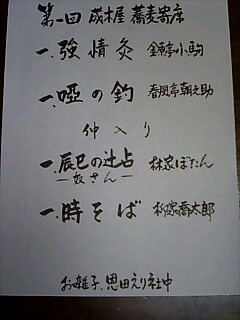 第一回 成木屋 蕎麦寄席
一、強情灸 金原亭小駒
一、唖の釣 春風亭朝之助
仲入り
一、辰巳の辻占 林家ぼたん
―奴さん―
一、時そば 柳家喬太郎
お囃子、恩田えり社中